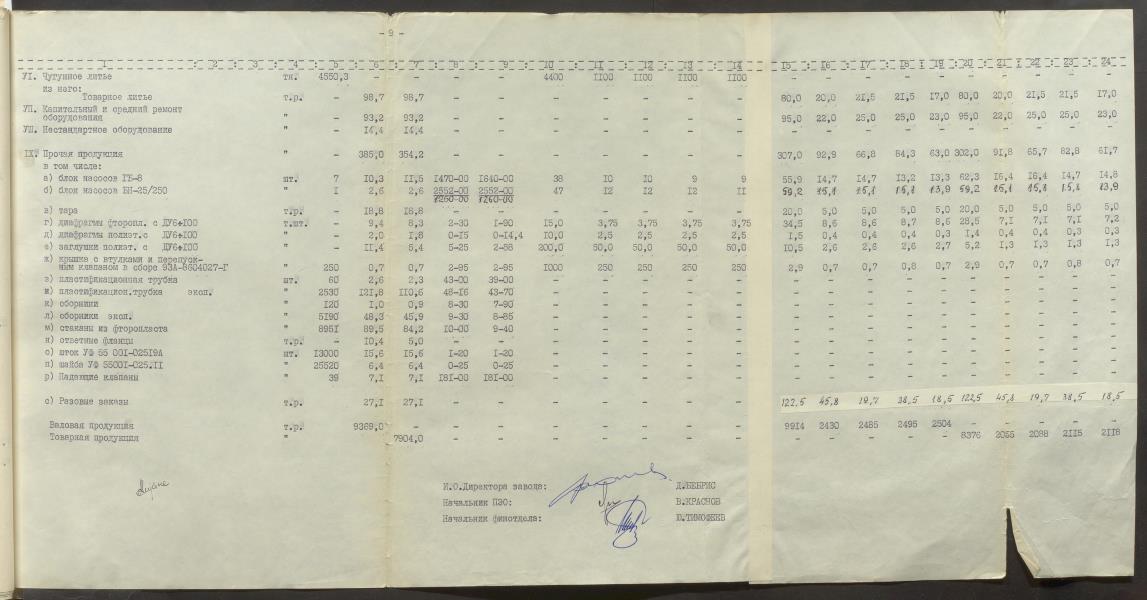 - 9 -
1 : 2 : 3 : 4 : 5 : 6 : 7 : 8 : 9 : 10 : 11 : 12 : 13 : 14 15 : 16 : 17 : 18 : 19 : 20 : 21 : 22 : 23 : 24
УI. Чугунное литье тн. 4550,3 - - - - 4400 II00 II00 II00 II00 - - - - - - - - - -
из него:
Товарное литье т.р. - 98,7 98,7 - - - - - - - 80,0 20,0 2I,5 2I,5 I7,0 80,0 20,0 2I,5 2I,5 I7,0
УП. Капитальный и средний ремонт
оборудования " - 93,2 93,2 - - - - - - - 95,0 22,0 25,0 25,0 23,0 95,0 22,0 25,0 25,0 23,0
УШ. Нестандартное оборудование " - I4,4 I4,4 - - - - - - - - - - - - - - - - -
IX. Прочая продукция " - 385,0 354,2 - - - - - - - 307,0 92,9 66,8 84,3 63,0 302,0 9I,8 65,7 82,8 6I,7
в том числе:
а) блок насосов ГБ-8 шт. 7 I0,3 II,5 I470-00 I640-00 38 I0 I0 9 9 55,9 I4,7 I4,7 I3,2 I3,3 62,3 I6,4 I6,4 I4,7 I4,8
б) блок насосов БН-25/250 " I 2,6 2,6 2552-00 2552-00 47 I2 I2 I2 II 59,2 15,1 15,1 15,1 13,9 59,2 15,1 15,1 15,1 13,9
I260-00 I260-00
в) тара т.р. - I8,8 I8,8 - - - - - - - 20,0 5,0 5,0 5,0 5,0 20,0 5,0 5,0 5,0 5,0
г) диафрагмы фторопл. с ДУ6+I00 т.шт. - 9,4 8,3 2-30 I-90 I5,0 3,75 3,75 3,75 3,75 34,5 8,6 8,6 8,7 8,6 28,5 7,I 7,I 7,I 7,2
д) диафрагмы полиэт.с ДУ6+I00 " - 2,0 I,8 0-I5 0-I4,4 I0,0 2,5 2,5 2,5 2,5 I,5 0,4 0,4 0,4 0,3 I,4 0,4 0,4 0,3 0,3
е) заглушки полиэт. с ДУ6+I00 " - II,4 6,4 5-25 2-58 200,0 50,0 50,0 50,0 50,0 I0,5 2,6 2,6 2,6 2,7 5,2 I,3 I,3 I,3 I,3
ж) крышка с втулками и перепуск-
ным клапаном в сборе 93А-8604027-Г " 250 0,7 0,7 2-95 2-95 I000 250 250 250 250 2,9 0,7 0,7 0,8 0,7 2,9 0,7 0,7 0,8 0,7
з) пластификационная трубка шт. 60 2,6 2,3 43-00 39-00 - - - - - - - - - - - - - - -
и) пластификацион.трубка эксп. " 2530 I2I,8 II0,6 48-I6 43-70 - - - - - - - - - - - - - - -
к) сборники " I20 I,0 0,9 8-30 7-90 - - - - - - - - - - - - - - -
л) сборники эксп. " 5I90 48,3 45,9 9-30 8-85 - - - - - - - - - - - - - - -
м) стаканы из фторопласта " 895I 89,5 84,2 I0-00 9-40 - - - - - - - - - - - - - - -
н) ответные фланцы т.р. - I0,4 5,0 - - - - - - - - - - - - - - - - -
о) шток УФ 55 00I-025I9А шт. I3000 I5,6 I5,6 I-20 I-20 - - - - - - - - - - - - - - -
п) шайба УФ 5500I-025.II " 25520 6,4 6,4 0-25 0-25 - - - - - - - - - - - - - - -
р) Падающие клапаны " 39 7,I 7,I I8I-00 I8I-00 - - - - - - - - - - - - - - -
с) Разовые заказы т.р. - 27,I 27,I - - - - - - - 122,5 45,8 19,7 38,5 18,5 122,5 45,8 19,7 38,5 18,5
Валовая продукция т.р. 9369,0 - - - - - - - - 99I4 2430 2485 2495 2504
Товарная продукция " 7904,0 - - - - - - - - - - - - 8376 2055 2088 2II5 2II8
И.О.Директора завода: Д.БЕБРИС
Начальник ПЭО: В.КРАСНОВ
Начальник финотдела: Ю.ТИМОФЕЕВ